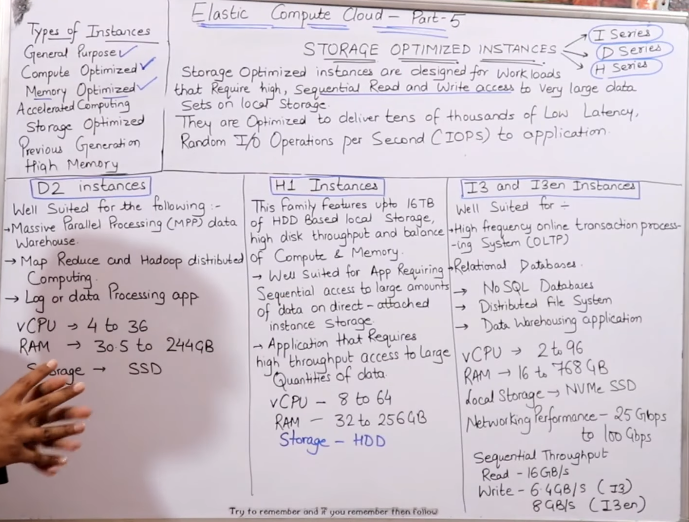 Elastic Compute Cloud - Part-5
Types of Instances
General Purpose ✓
Compute Optimized ✓
Memory Optimized ✓
Accelerated Computing
Storage Optimized
Previous Generation
High Memory
STORAGE OPTIMIZED INSTANCES
I Series
D Series
H Series
Storage Optimized instances are designed for Workloads
that Require high, Sequential Read and Write access to Very large data
Sets on local Storage.
They are Optimized to deliver tens of thousands of Low Latency,
Random I/O Operations per Second (IOPS) to application.
D2 instances
Well Suited for the following :-
→ Massive Parallel Processing (MPP) data
Warehouse
→ Map Reduce and Hadoop distributed
Computing.
→ Log or data Processing app
vCPU → 4 to 36
RAM → 30.5 to 244GB
Storage → SSD
H1 Instances
This Family features upto 16TB
of HDD Based local Storage,
high disk throughput and balance
of Compute & Memory.
→ Well Suited for App Requiring
Sequential access to large amounts
of data on direct-attached
instance Storage.
→ Application that Requires
high throughput access to Large
Quantities of data.
vCPU - 8 to 64
RAM - 32 to 256GB
Storage - HDD
I3 and I3en Instances
Well Suited for :-
→ High frequency online transaction process-
-ing System (OLTP)
→ Relational Databases.
→ No SQL Databases
→ Distributed File System
→ Data Warehousing application
vCPU → 2 to 96
RAM → 16 to 768GB
Local Storage → NVMe SSD
Networking Performance - 25 Gbps
to 100 Gbps
Sequential Throughput
Read - 16GB/s
Write - 6.4GB/s (I3)
8 GB/s (I3en)
Try to remember and if you remember then follow